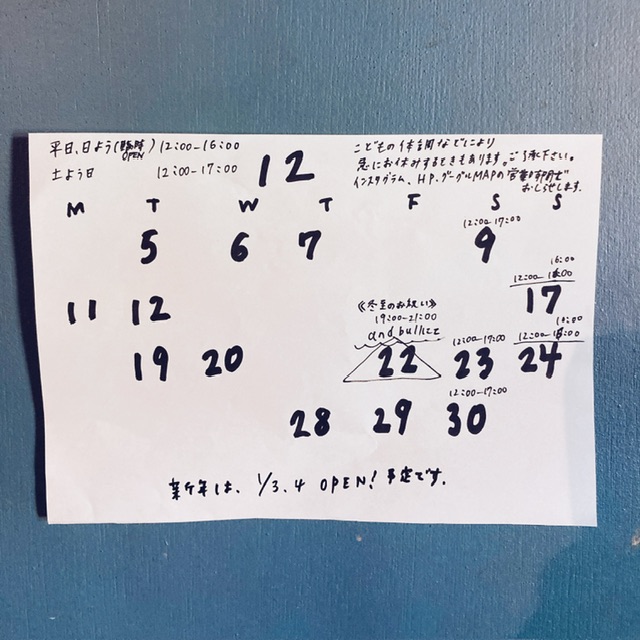 平日、日よう(臨時OPEN) 12:00-16:00
土よう日 12:00-17:00
12
こどもの体調などにより
急にお休みするときもあります。ご了承下さい。
インスタグラム、HP、グーグルMAPの営業時間で
おしらせします。
M T W T F S S
12:00-17:00
5 6 7 9
16:00
12:00-
11 12 17
《冬至のお祝い》
19:00-21:00
and bullにて
12:00-17:00
12:00-
19 20 22 23 24
12:00-17:00
28 29 30
新年は、1/3、4 OPEN! 予定です。